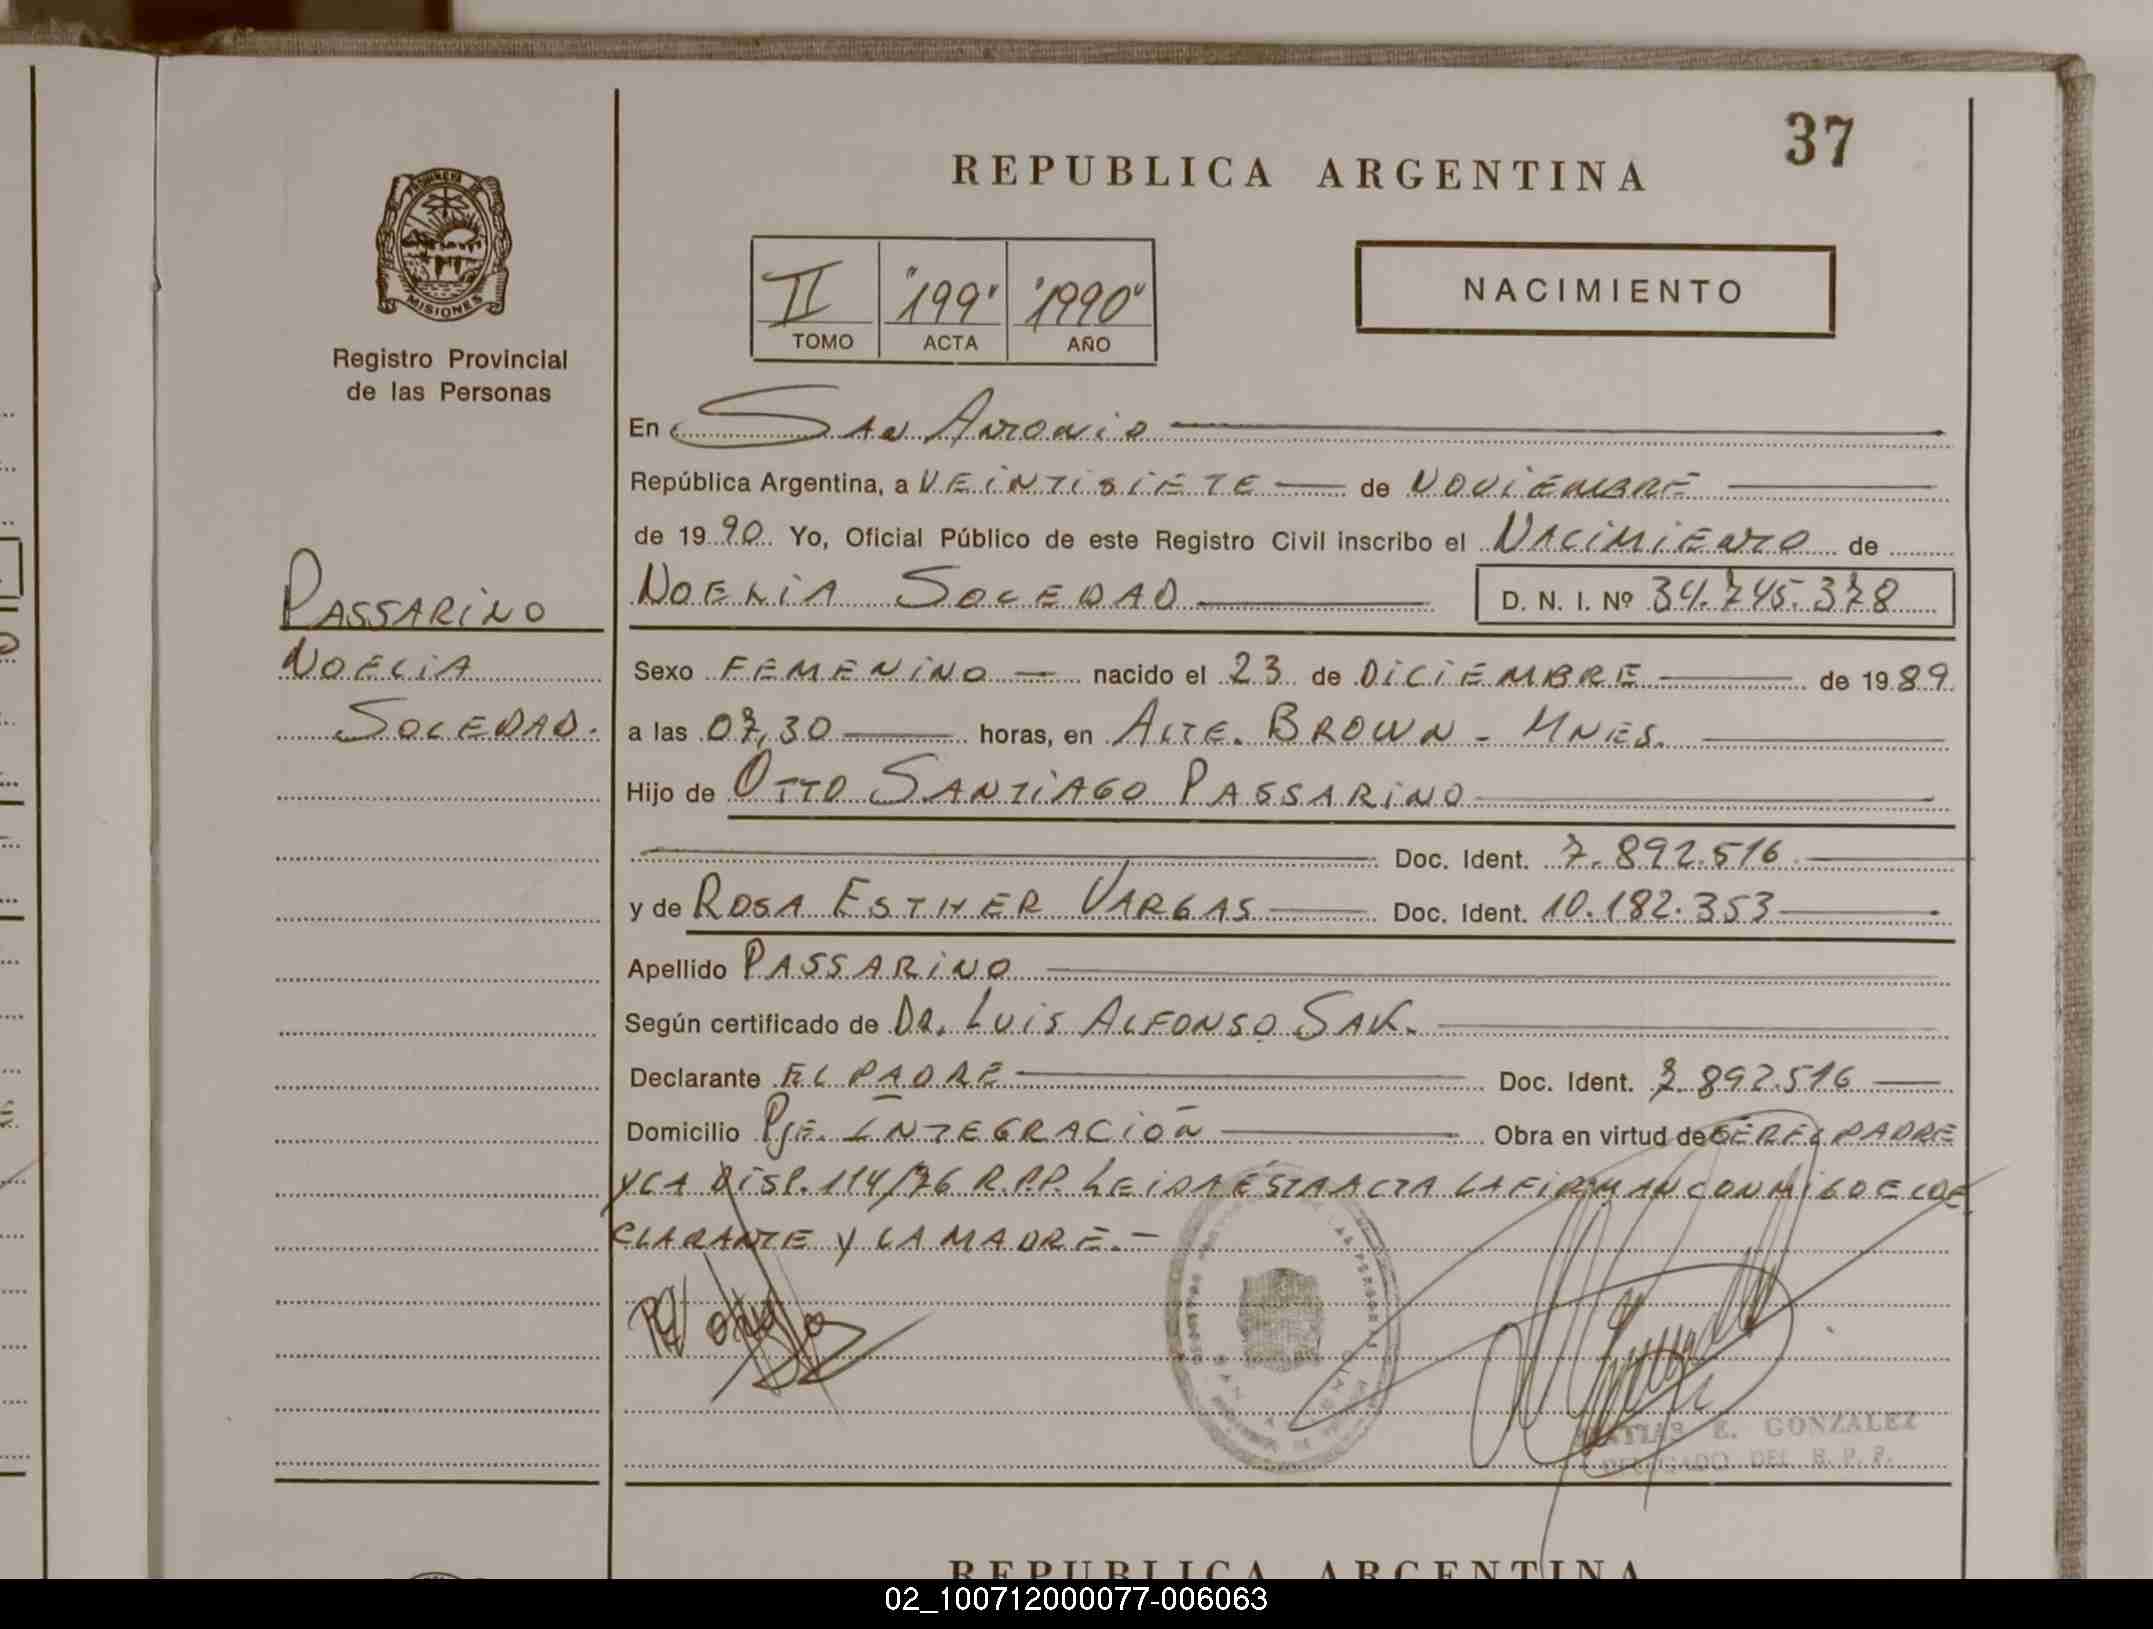 37
REPUBLICA ARGENTINA
PROVINCIA DE
MISIONES
Registro Provincial
de las Personas
II "199" "1990"
TOMO ACTA AÑO
NACIMIENTO
En San Antonio
República Argentina, a VEINTISIETE de NOVIEMBRE
de 1990 Yo, Oficial Público de este Registro Civil inscribo el NACIMIENTO de
NOELIA SOLEDAD D. N. I. Nº 34.745.378
PASSARINO
NOELIA
SOLEDAD.
Sexo FEMENINO nacido el 23 de DICIEMBRE de 1989
a las 07,30 horas, en ALTE. BROWN - MNES.
Hijo de OTTO SANTIAGO PASSARINO
Doc. Ident. 7.892.516
y de ROSA ESTHER VARGAS Doc. Ident. 10.182.353
Apellido PASSARINO
Según certificado de DR. LUIS ALFONSO SAK.
Declarante EL PADRE Doc. Ident. 7.892.516
Domicilio PJE. INTEGRACIÓN Obra en virtud de SER EL PADRE
Y LA DISP. 114/76 R.P.P. LEIDA ÉSTA ACTA LA FIRMAN CONMIGO EL DE
CLARANTE Y LA MADRE.-
MATIAS E. GONZALEZ
DELEGADO DEL R. P. P.
REPUBLICA ARGENTINA
02_100712000077-006063